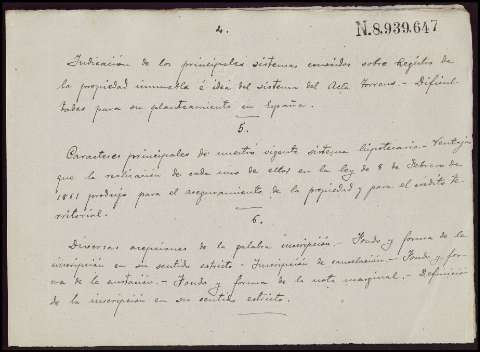 4.
N.8.939.647
Indicación de los principales sistemas conocidos sobre Registro de
la propiedad inmueble é idea del sistema del Acta Torrens.- Dificul-
tades para su planteamiento en España.
5.
Caracteres principales de nuestro vigente sistema hipotecario.- Ventajas
que la realización de cada uno de ellos en la ley de 8 de Febrero de
1861 produjo para el aseguramiento de la propiedad y para el crédito te-
rritorial.
6.
Diversas acepciones de la palabra inscripción.- Fondo y forma de la
inscripción en su sentido estricto.- Inscripción de cancelación.- Fondo y for-
ma de la anotación.- Fondo y forma de la nota marginal.- Definición
de la inscripción en su sentido estricto.